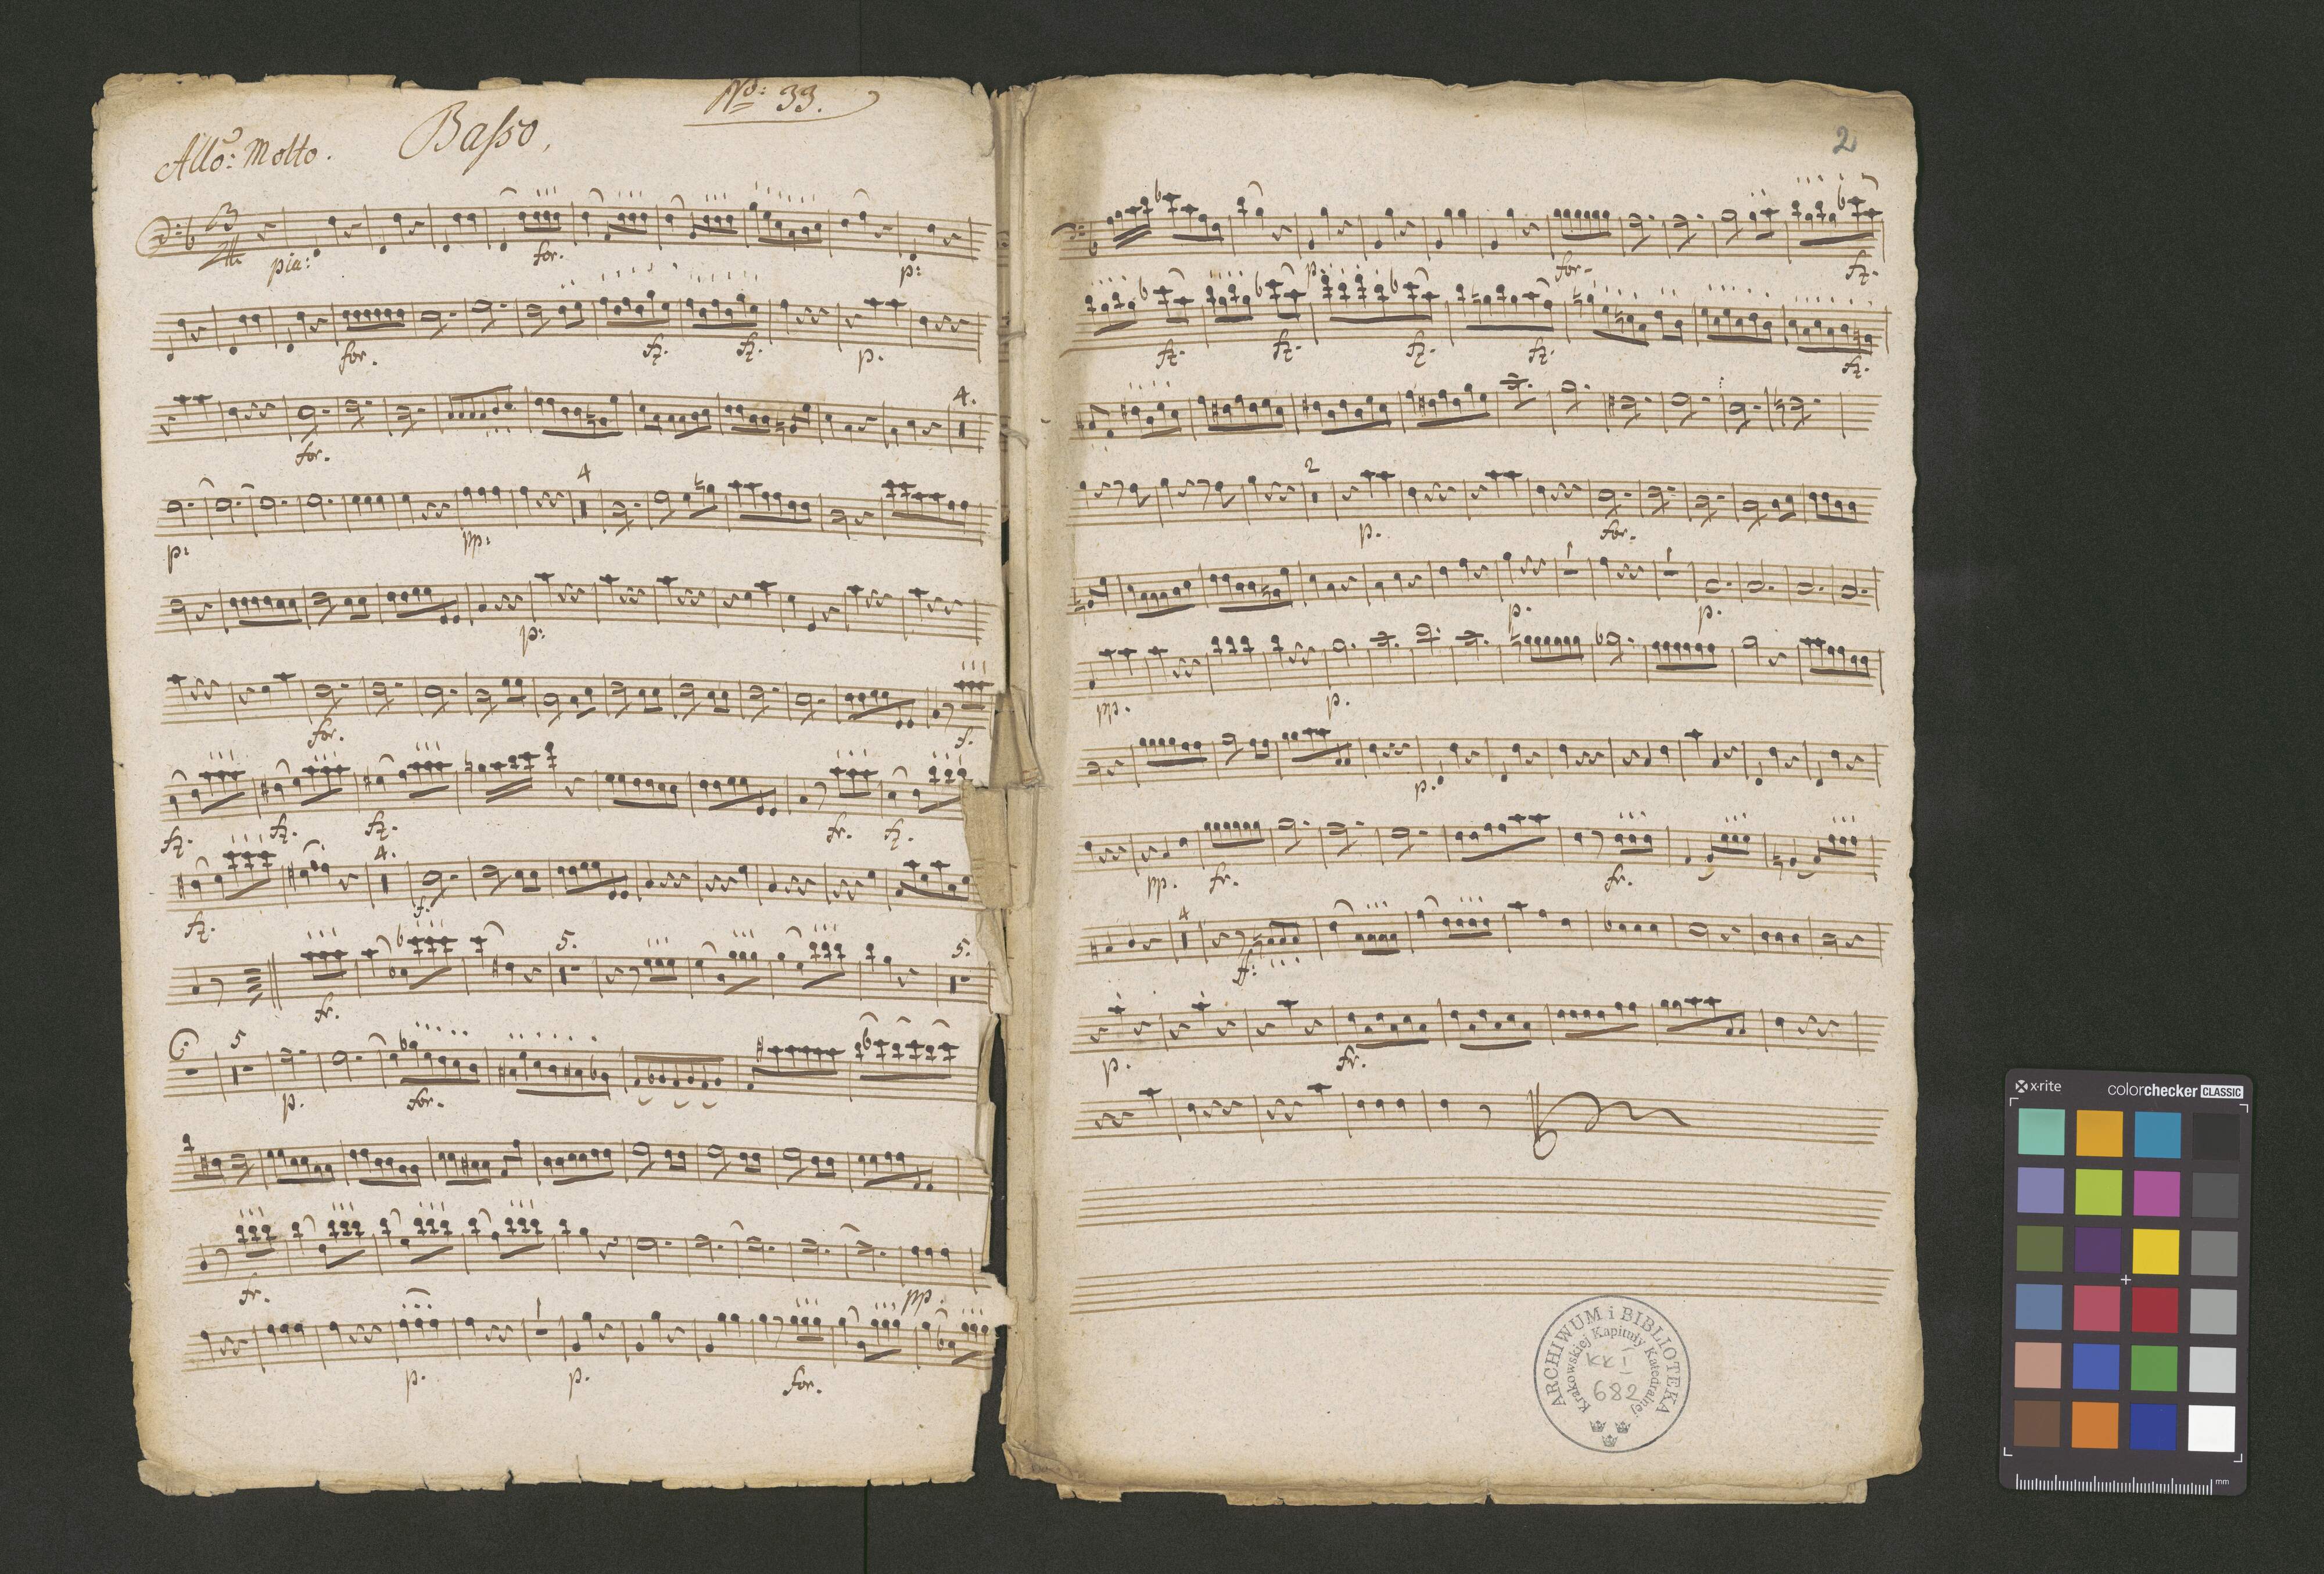 No: 33.
Allo: Molto. Basso,
3
4
pia: for. p:
for. fz. fz. p.
for. 4.
p: pp: 4
p:
for. f.
fz. fz. fz. fr. fz.
fz. 4. f.
fr. 5. 5.
5 p. for.
fr. pp.
p. p. for.
2
p: for. fz.
fz. fz. fz. fz. fz.
2 p. for.
p. p.
pp. p.
p.
pp. fr. fr.
4 ff:
p. fr.
ARCHIWUM i BIBLIOTEKA
Krakowskiej Kapituły Katedralnej
KK I
682
x-rite colorchecker CLASSIC
mm